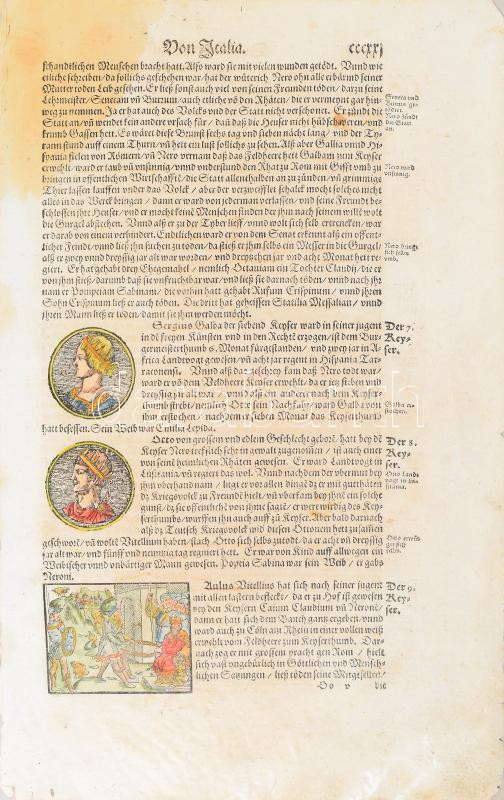 Von Italia.
cccxxj
schandtlichen Menschen bracht hatt. Also ward sie mit vielen wunden getödt. Vnnd wie
etliche schreiben/ da sollichs geschehen war/ hat der wüterich Nero ohn alle erbärmd seiner
Mutter todten Leib gesehen. Er ließ sonst auch viel von seinen Freunden töden/ darzu seine
Lehrmeister/ Senecam vñ Burrum/ auch etliche võ den Rhäten/ die er vermeynt gar hin-
weg zu nemmen. Ja er hat auch des Volcks vnd der Statt nicht verschonet. Er zündt die
Statt an/ vñ wendet kein andere vrsach für/ daß daß die Heuser nicht hübsch weren/ vnd
krumb Gassen hett. Es wäret diese Brunst sechs tag vnd sieben nächt lang/ vnd der Ty-
rann stund auff einem Thurn/ vñ hett ein lust sollichs zu sehen. Alß aber Gallia vnnd Hi-
spania fielen von Römern/ vñ Nero vernam daß das Feldheere hett Galbam zum Keyser
erwehlt/ ward er taub vñ vnsinnig/ vnnd vnderstund den Rhat zu Rom mit Gifft vmb zu
bringen in offentlichen Wirtschafft/ die Statt allenthalben an zu zünden/ vñ grimmige
Thier lassen lauffen vnder das Volck/ aber der verzweiflet schalck mocht solches nicht
alles in das Werck bringen/ dann er ward von jederman verlassen/ vnd seine Freund be-
schlossen jhre Heuser/ vnd er mocht keine Menschen finden der jhm nach seinem willē wolt
die Gurgel abstechen. Vnnd alß er zu der Tyber lieff/ vnnd wolt sich selb ertrencken/ war
er darab von einem verhindert. Endtlichen ward er von dem Senat erkennt alß ein offent-
licher Feindt/ vnnd ließ jhn suchen zu töden/ da stieß er jhm selbs ein Messer in die Gurgel/
alß er zwey vnnd dreyssig jar alt war worden/ vnd dreyzehen jar vnd acht Monat hett re-
giert. Er hat gehabt drey Ehegemahel/ nemlich Octaviam ein Tochter Claudij/ die er
von jhm stieß/ darumb daß sie vnfruchtbar war/ vnd ließ sie darnach töden/ vnnd nach jhr
nam er Pompeiam Sabinam/ die vorhin hatt gehabt Rufum Crispinum/ vnnd jhren
Sohn Crispinum ließ er auch töden. Die drit hat geheissen Statilia Messalian/ vnnd
jhren Mann ließ er töden/ damit sie jhm werden möcht.
Seneca vnd
Burrus ge-
tödtet.
Nero zündt
die Statt
an.
Nero wird
vnsinnig.
Nero bringt
sich selbs
vmb.
Sergius Galba der siebend Keyser ward in seiner jugent
in dē freyen Künsten vnd in den Rechtē erzogen/ ist dem Bur-
germeisterthumb 6. Monat fürgestanden/ vnd zwey jar in A-
frica Landtvogt gewesen/ vñ acht jar regent in Hispania Tar-
raconensi. Vnnd alß das geschrey kam daß Nero todt war/
ward er võ dem Veldheere Keyser erwehlt/ da er lxx sieben vnd
dreyssig jar alt war/ vnnd alß ein anderer nach dem Keyser-
thumb strebt/ nemlich Otto sein Nachkom̃/ ward Galba von
jhm erstochen/ nach dem er sieben Monat das Keyserthumb
hatt besessen. Sein Weib war Emilia Lepida.
Der 7.
Key-
ser.
Galba er-
stochen.
Otto von grossem vnd edlem Geschlecht geborē/ hatt bey dē
Keyser Nero trefflich sehr in gewalt zugenoṁen/ ist auch einer
von seinē heimlichen Rhäten gewesen. Er ward Landtvogt in
Lusitania/ vñ regiert das wol. Vnnd nachdem der vbermut bey
jhm vberhand nam/ ligt er vor allen dingē dz er mit gutthäten
dz Kriegsvolck zu Freundt hielt/ vñ vberkam bey jhnē ein solche
gunst/ dz sie offentlich võ jhme sagtē/ er were wirdig des Key-
serthumbs/ wurffen jhn auch auff zu Keyser. Aber bald darnach
alß dz Teutsch Kriegsvolck wid diesen Ottonem hett zusam̃en
geschworē/ vñ woltē Vitellium haben/ stach Otto sich selbs zu todt/ da er acht vñ dreyssig
jar alt war/ vnd fünff vnd neuntzig tag regniert hett. Er war von Kind auff allwegen ein
Weibischer vnnd vnbärtiger Mann gewesen. Popeia Sabina war sein Weib/ er gabs
Neroni.
Der 8.
Key-
ser.
Otto Landt-
vogt in Lu-
sitania.
Otto erwür-
get sich
selbs.
Aulus Vitellius hat sich nach seiner jugent
mit allen lastern befleckt/ da er zu Hof ist gewesen
bey den Keysern Caium Claudium vñ Neronē/
dann er hatt sich dem Bauch gantz ergeben/ vnnd
ward auch zu Cöln am Rhein in einer vollen weiß
erwehlt vom Feldheere zum Keyserthumb. Dar-
nach zog er mit grossem pracht gen Rom/ hielt
sich vast vngebürlich in Göttlichen vnd Mensch-
lichen Satzungen/ ließ töden seine Mitgesellen/
Der 9.
Key-
ser.
Oo v
die